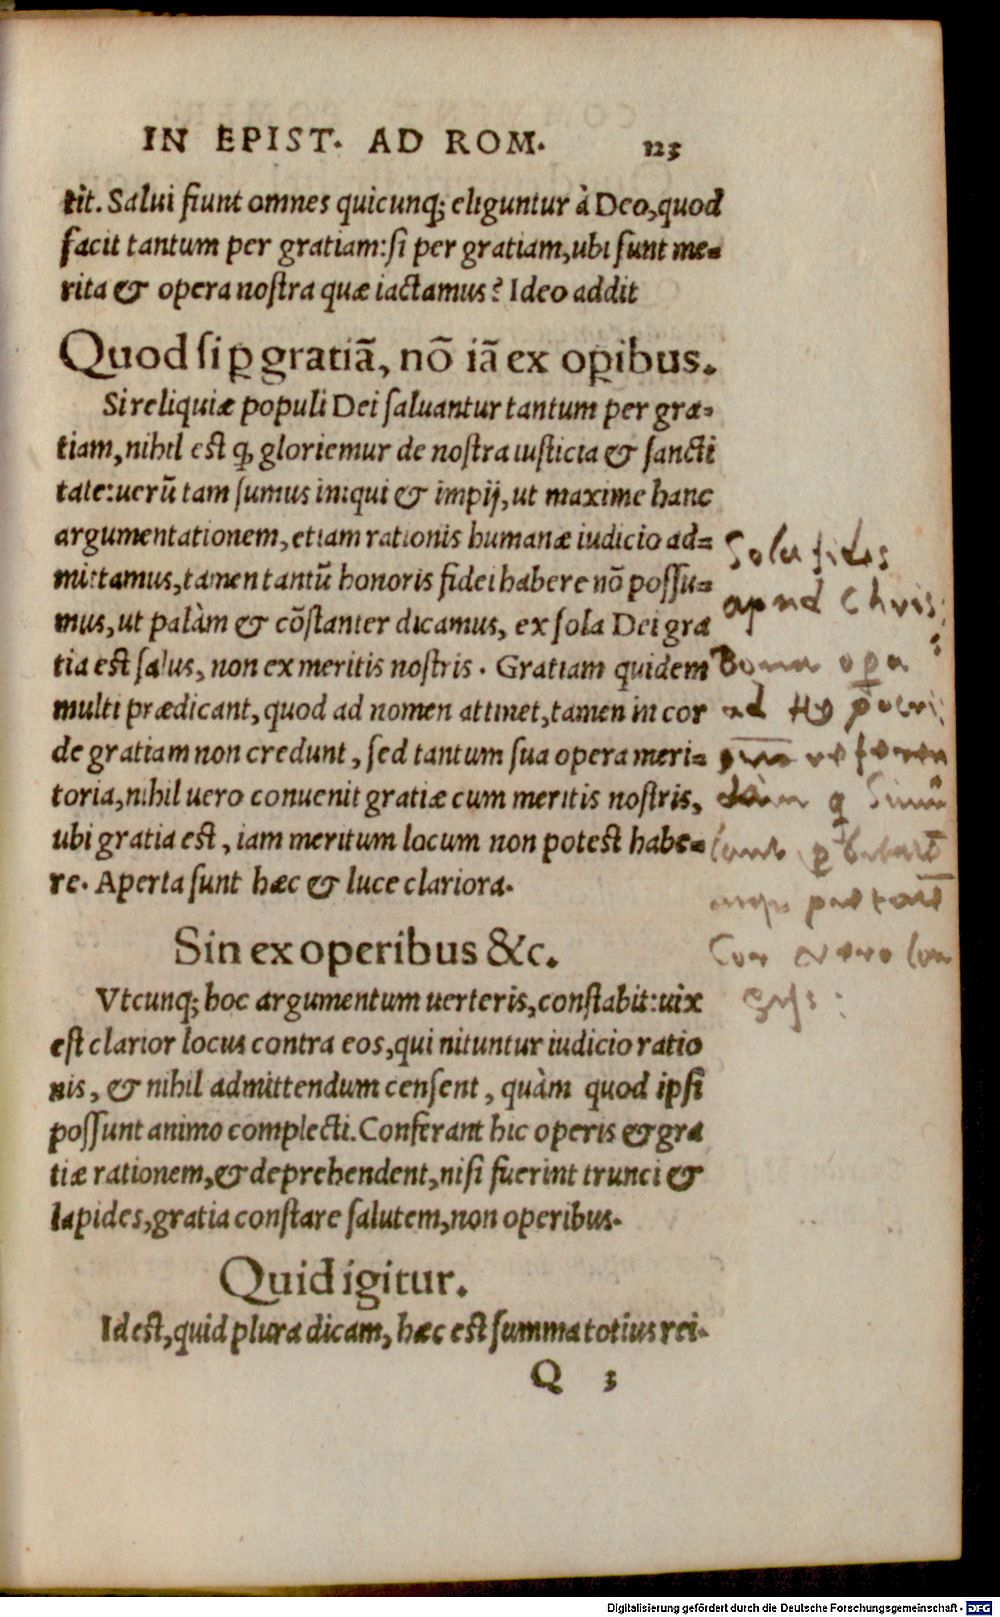 IN EPIST. AD ROM. 123
tit. Salui fiunt omnes quicunq; eliguntur à Deo, quod
facit tantum per gratiam: si per gratiam, ubi sunt me=
rita & opera nostra quæ iactamus? Ideo addit
Quod si ꝑ gratiã, nõ iã ex oꝑibus.
Si reliquiæ populi Dei saluantur tantum per gra=
tiam, nihil est ꝙ gloriemur de nostra iusticia & sancti
tate: uerũ tam sumus iniqui & impij, ut maxime hanc
argumentationem, etiam rationis humanæ iudicio ad=
mittamus, tamen tantũ honoris fidei habere nõ possu=
mus, ut palàm & cõstanter dicamus, ex sola Dei gra
tia est salus, non ex meritis nostris. Gratiam quidem
multi prædicant, quod ad nomen attinet, tamen in cor
de gratiam non credunt, sed tantum sua opera meri=
toria, nihil uero conuenit gratiæ cum meritis nostris,
ubi gratia est, iam meritum locum non potest habe=
re. Aperta sunt hæc & luce clariora.
Sin ex operibus &c.
Vtcunq; hoc argumentum uerteris, constabit: uix
est clarior locus contra eos, qui nituntur iudicio ratio
nis, & nihil admittendum censent, quàm quod ipsi
possunt animo complecti. Conferant hic operis & gra
tiæ rationem, & deprehendent, nisi fuerint trunci &
lapides, gratia constare salutem, non operibus.
Quid igitur.
Id est, quid plura dicam, hæc est summa totius rei.
Q 3
Sola fides
apud Chris
Bona oꝑa
ad